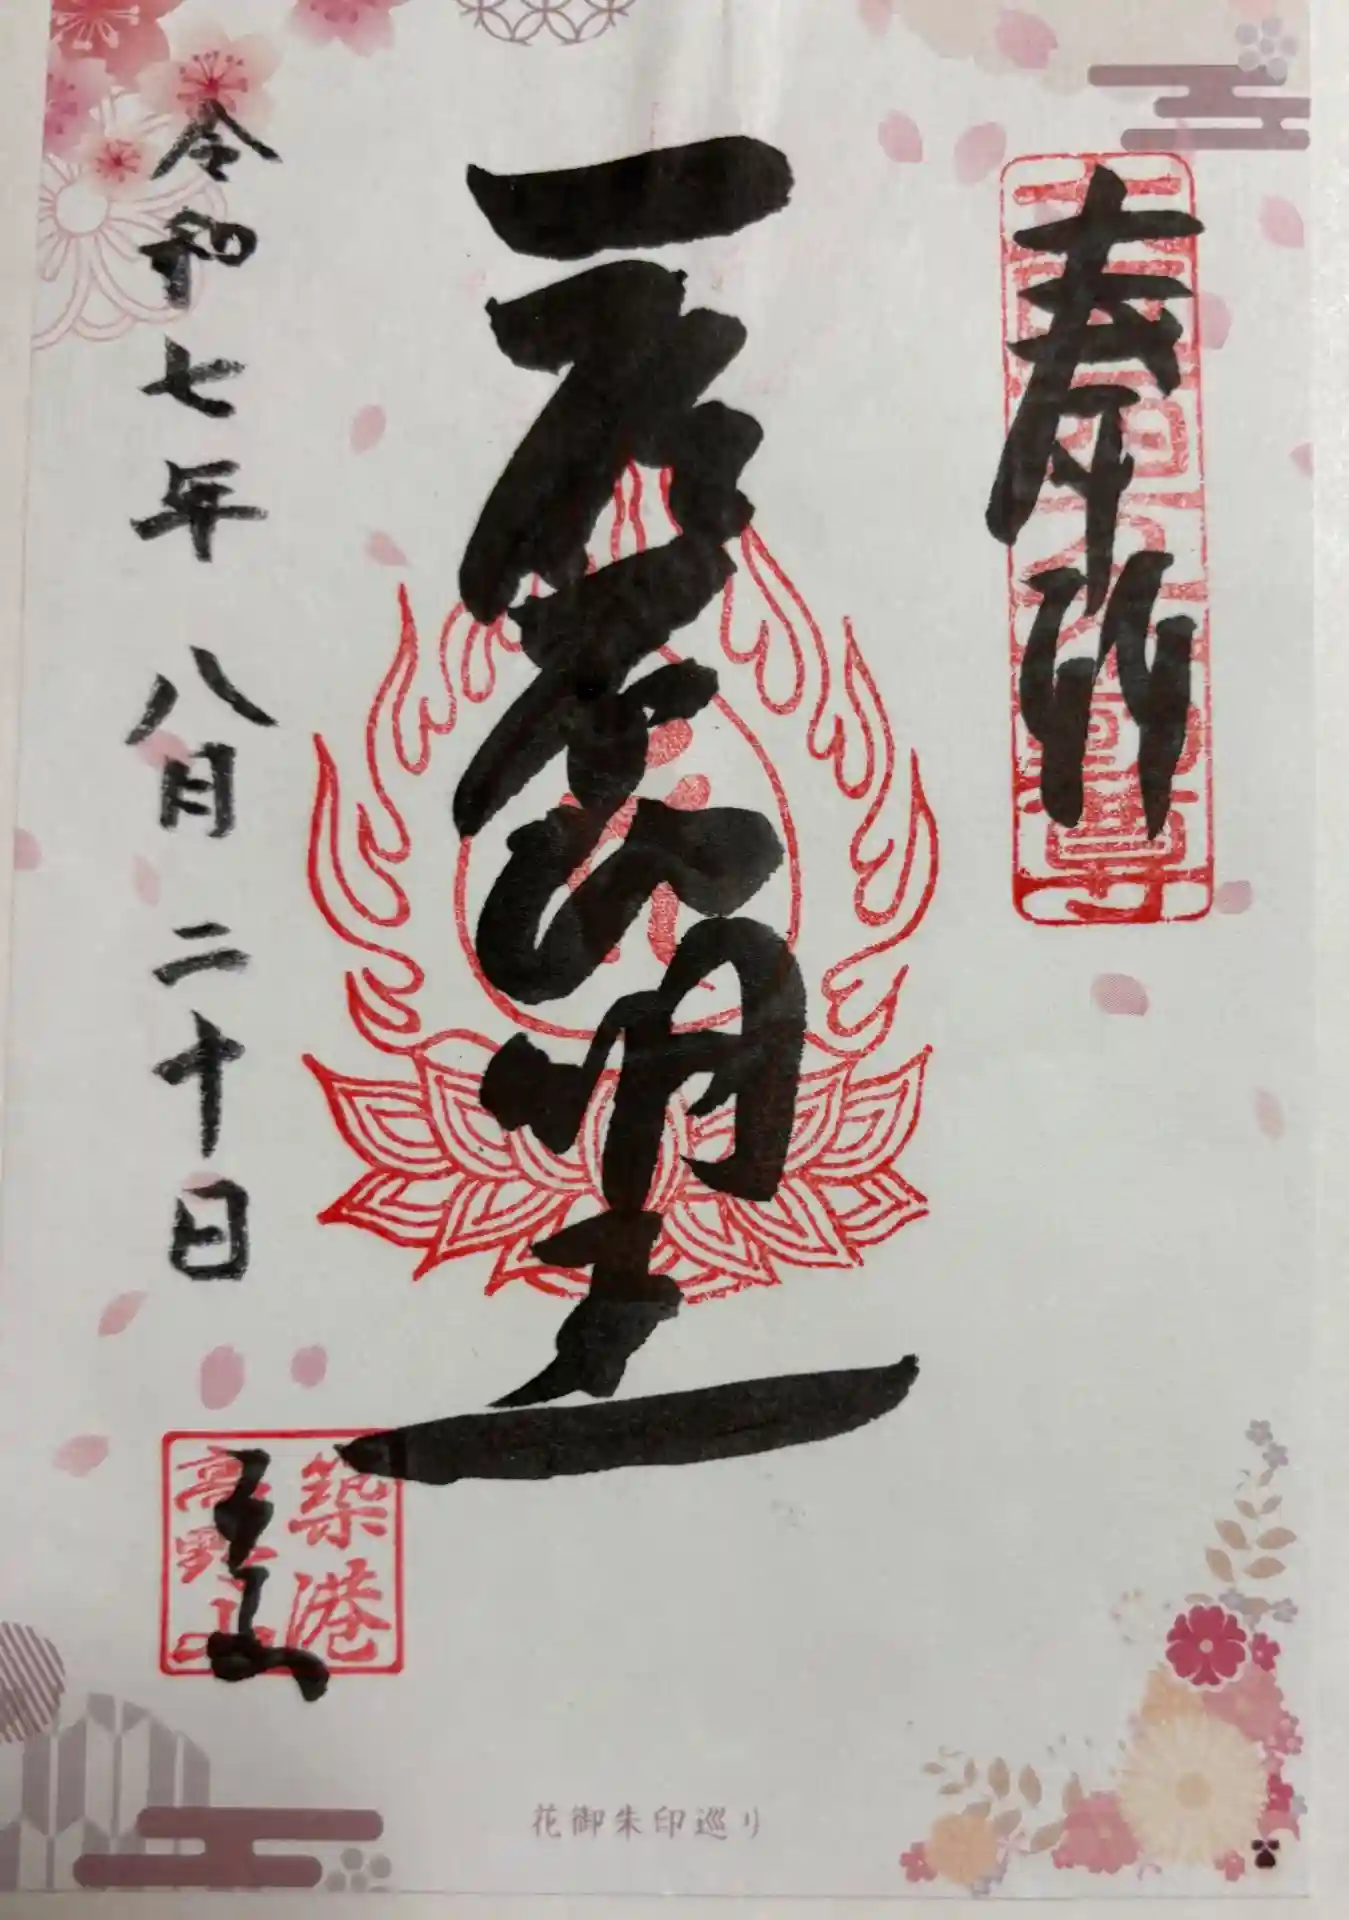 奉拝
一願不動明王
令和七年八月二十日
築港
高野山
花御朱印巡り